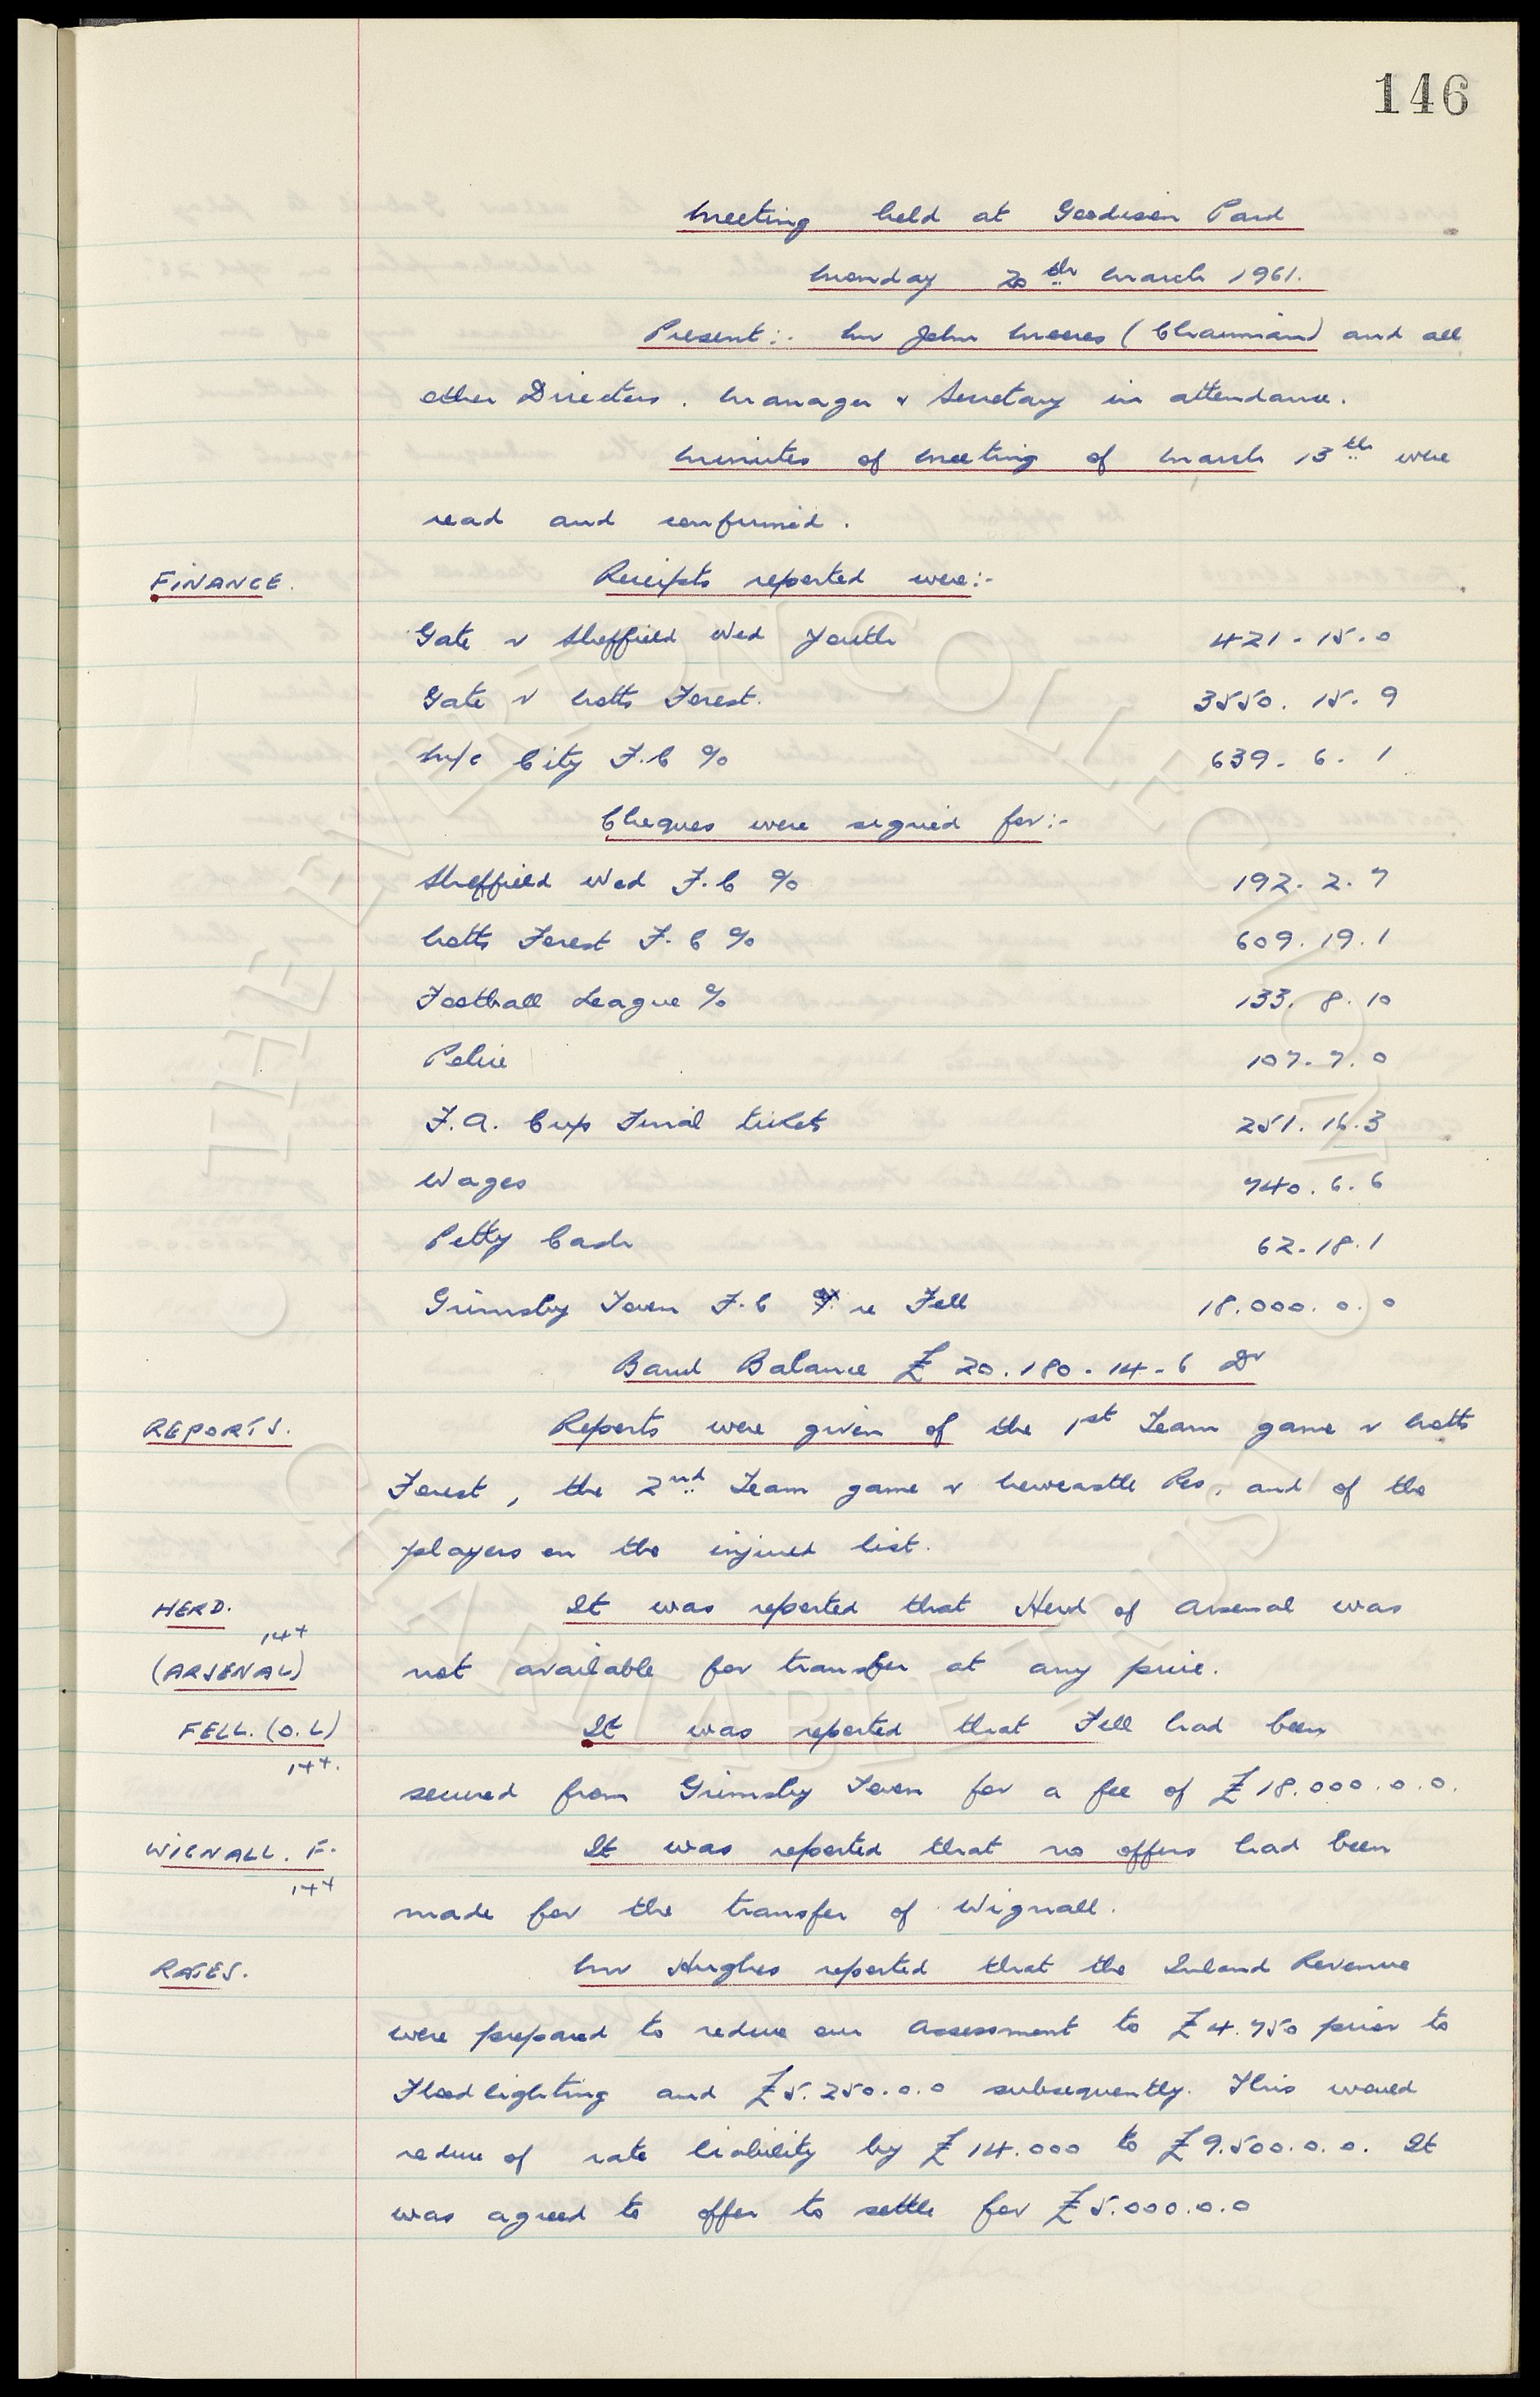 146
Meeting held at Goodison Park
Monday 20th March 1961.
Present:- Mr John Moores (Chairman) and all
other Directors. Manager & Secretary in attendance.
Minutes of Meeting of March 13th were
read and confirmed.
FINANCE. Receipts reported were:-
Gate v Sheffield Wed Youth 421-15.0
Gate v Notts Forest. 3550.15.9
M/c City F.C % 639-6.1
Cheques were signed for:-
Sheffield Wed F.C % 192.2.7
Notts Forest F.C % 609.19.1
Football League % 133.8.10
Police 107-7.0
F.A. Cup Final tickets 251.16.3
Wages 740.6.6
Petty Cash 62-18.1
Grimsby Town F.C re Fell 18.000.0.0
Bank Balance £20.180-14-6 Dr
REPORTS. Reports were given of the 1st Team game v Notts
Forest, the 2nd Team game v Newcastle Res, and of the
players on the injured list.
HERD. It was reported that Herd of Arsenal was
144
(ARSENAL) not available for transfer at any price.
FELL. (O.L) It was reported that Fell had been
144.
secured from Grimsby Town for a fee of £18.000.0.0.
WIGNALL. F. It was reported that no offers had been
144
made for the transfer of Wignall.
RATES. Mr Hughes reported that the Inland Revenue
were prepared to reduce our Assessment to £4.750 prior to
Floodlighting and £5.250.0.0 subsequently. This would
reduce of rate liability by £14.000 to £9.500.0.0. It
was agreed to offer to settle for £5.000.0.0
EVERTON COLLECTION
CHARITABLE TRUST